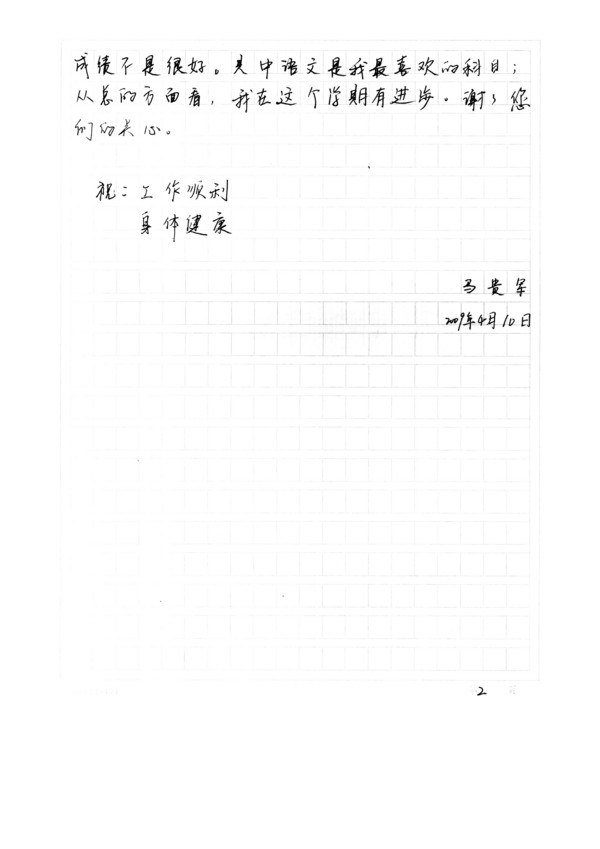 成绩不是很好。其中语文是我最喜欢的科目；
从总的方面看，我在这个学期有进步。谢谢您
们的关心。
祝：工作顺利
身体健康
马贵军
2009年4月10日
2